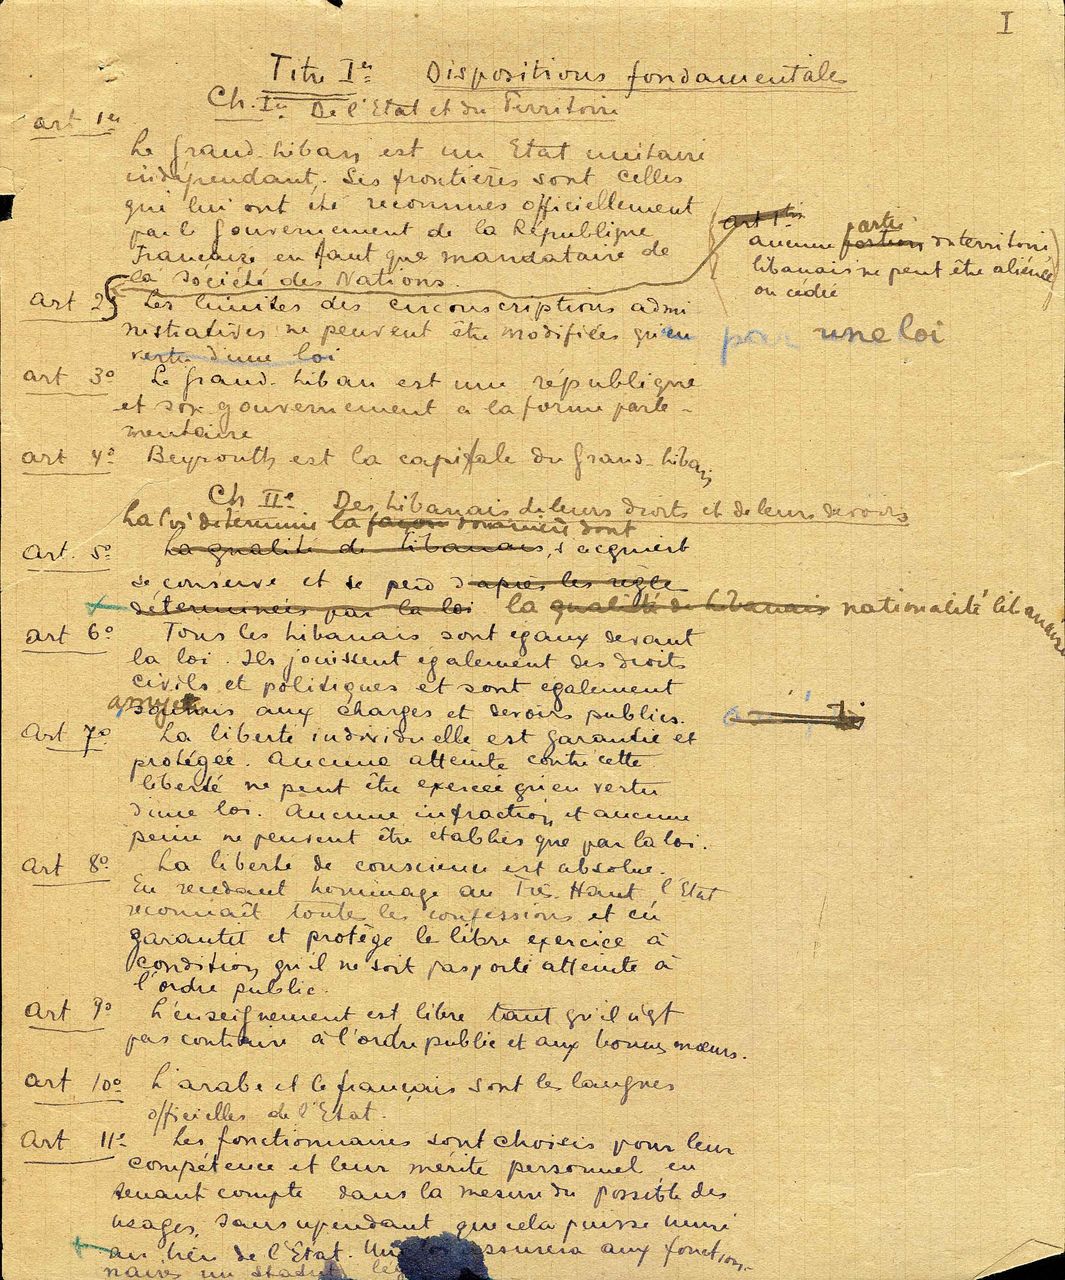 I
Titre Ier Dispositions fondamentales
Ch. Ier De l'Etat et du Territoire
art 1er
Le Grand-Liban est un Etat unitaire
indépendant. Ses frontières sont celles
qui lui ont été reconnues officiellement
par le Gouvernement de la République
Française en tant que mandataire de
la Société des Nations.
art 1bis
aucune portion partie du territoire
libanais ne peut être aliénée
ou cédée
art 2
Les limites des circonscriptions admi
nistratives ne peuvent être modifiées qu'en
vertu d'une loi
par une loi
art 3°
Le Grand-Liban est une république
et son gouvernement a la forme parle-
mentaire
art 4°
Beyrouth est la capitale du Grand-Liban
Ch IIe Des Libanais de leurs droits et de leurs devoirs
La loi détermine la façon dont
Art. 5°
La qualité de libanais, s'acquiert
se conserve et se perd d'après les règle
déterminées par la loi la qualité de libanais nationalité libanaise
art 6°
Tous les Libanais sont égaux devant
la loi. Ils jouissent également des droits
civils et politiques et sont également
soumis aux charges et devoirs publics.
Art 7°
La liberté individuelle est garantie et
protégée. Aucune atteinte contre cette
liberté ne peut être exercée qu'en vertu
d'une loi. Aucune infraction et aucune
peine ne peuvent être établies que par la loi.
Art 8°
La liberté de conscience est absolue.
En rendant hommage au Très-Haut l'Etat
reconnaît toutes les confessions et en
garantit et protège le libre exercice à
condition qu'il ne soit pas porté atteinte à
l'ordre public.
Art 9°
L'enseignement est libre tant qu'il n'est
pas contraire à l'ordre public et aux bonnes mœurs.
art 10°
L'arabe et le français sont les langues
officielles de l'Etat.
Art 11°
Les fonctionnaires sont choisis pour leur
compétence et leur mérite personnel en
tenant compte dans la mesure du possible des
usages, sans cependant que cela puisse nuire
au bien de l'Etat. Une assurera aux fonction-
naires un statut